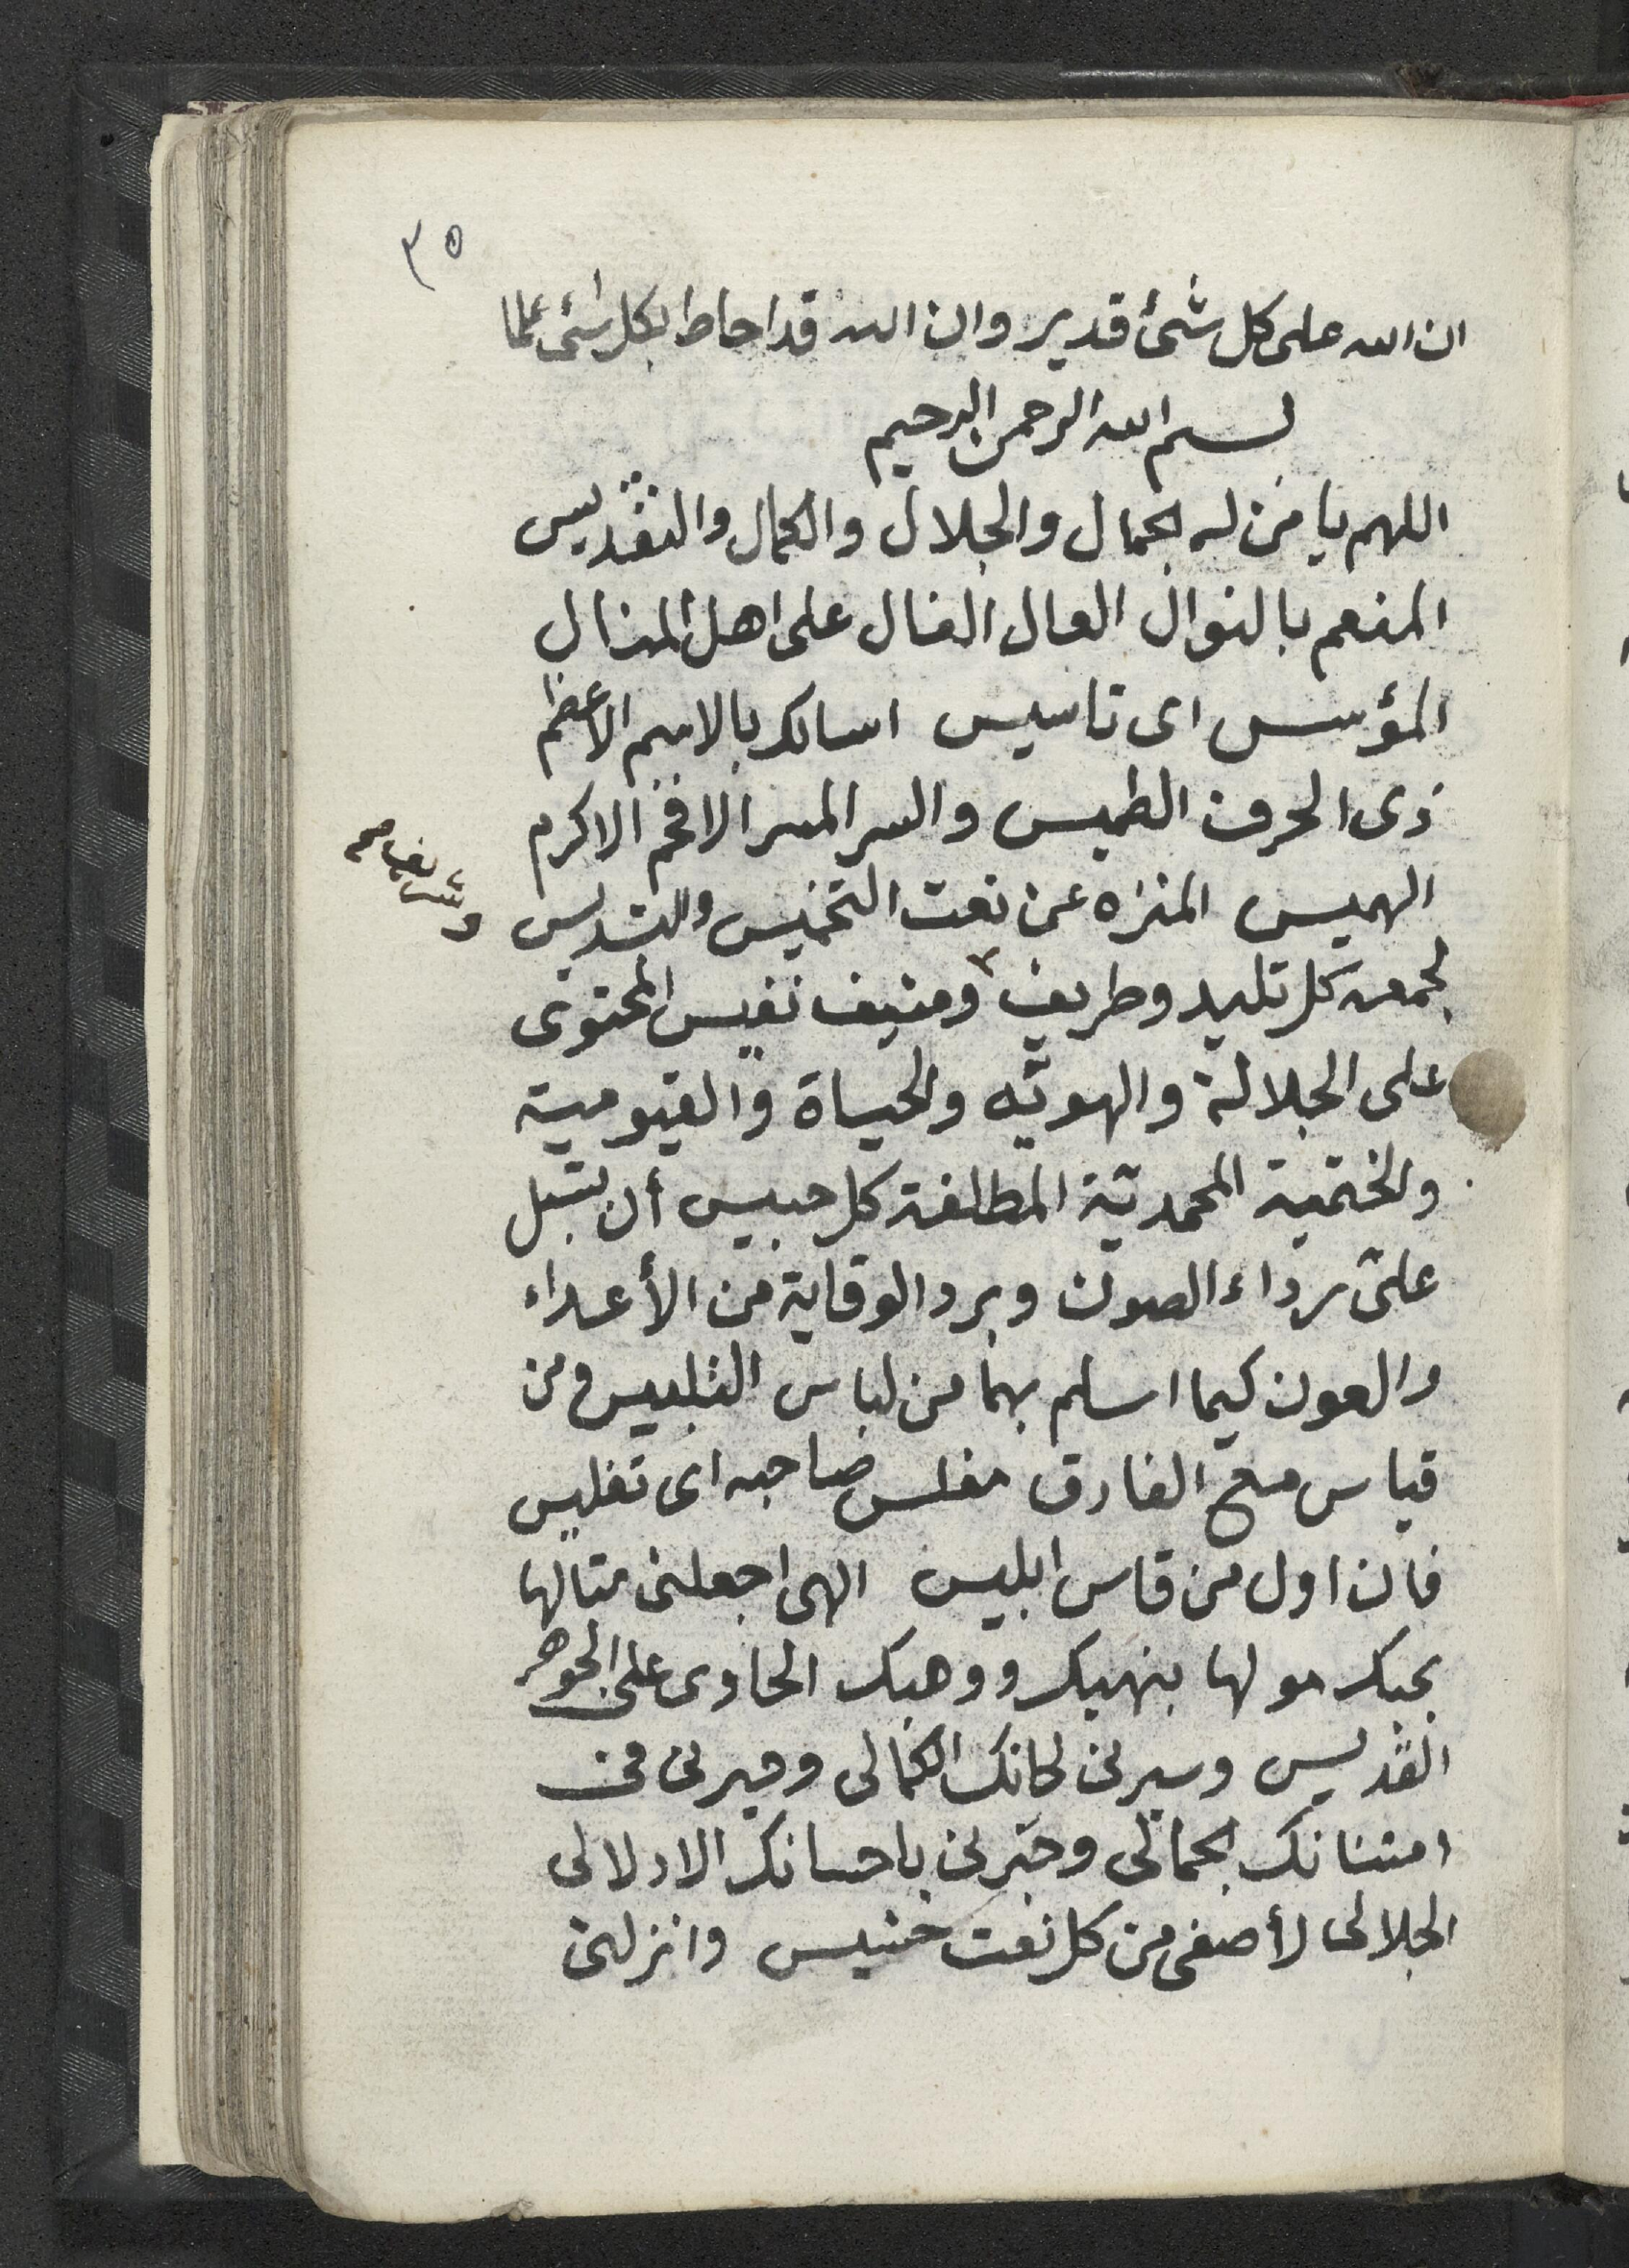 ٣٥
ان الله على كل شئ قدير وان الله قد احاط بكل شئ علما
بسم الله الرحمن الرحيم
اللهم يا من له الجمال والجلال والكمال والتقديس
المنعم بالنوال العال الغال على اهل المنال
المؤسس اى تاسيس اسالك بالاسم الاعظم
ذى الحرف الطميس والسر المسر الافخم الاكرم
الهميس المنزه عن نعت التخنيس والتدليس
لجمعه كل تليد وطريف ومنيف نفيس المحتوى
وشريف صح
على الجلالة والهويّه والحياة والقيومية
والختمية المحمديّة المطلقة كل حبيس أن تسبل
علىّ رداء الصون وبرد الوقاية من الأعداء
والعون كيما اسلم بهما من لباس التلبيس ومن
قياس مع الفارق مفلس صاحبه اى تفليس
فان اول من قاس ابليس الهى اجعلنى متالها
بحبك مولها بنهيك ووهبك الحاوى على الجوهر
القديس وسيرنى لحانك الكمالى وحيرنى فى
امتنانك الجمالى وحبّرنى باحسانك الادلالى
الجلالى لأصفى من كل نعت خنيس وانزلنى